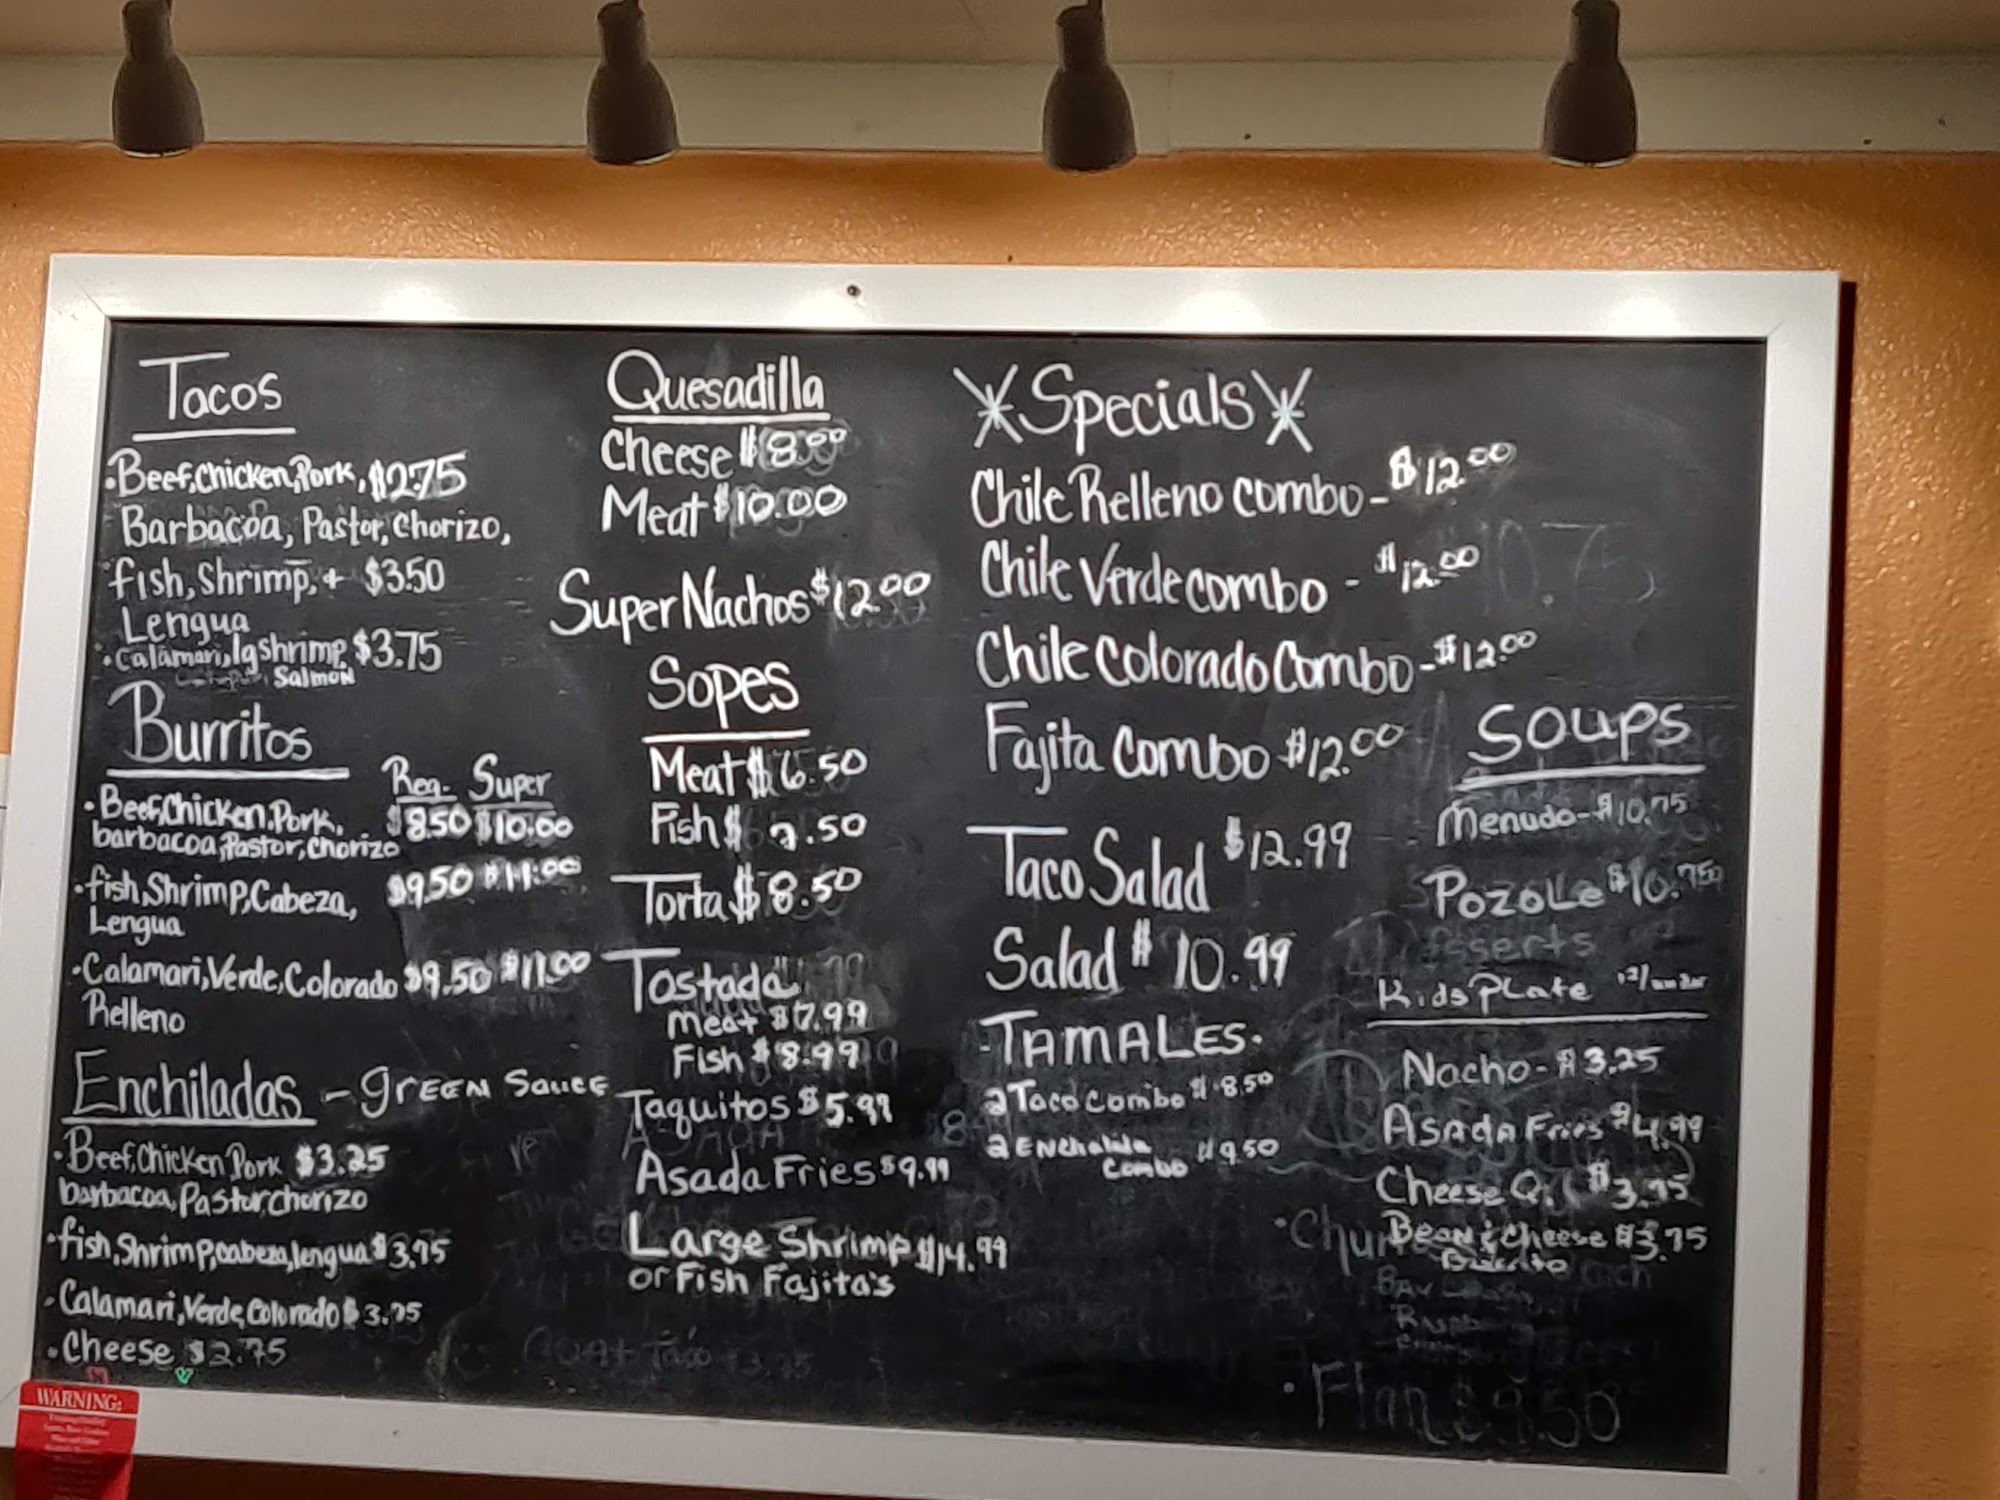 Tacos
·Beef,Chicken,Pork, $2.75
Barbacoa, Pastor, Chorizo,
fish, Shrimp, + $3.50
Lengua
·Calamari, lg shrimp $3.75
Salmon
Burritos
Reg. Super
·Beef,Chicken,Pork, $8.50 $10.00
barbacoa, Pastor, Chorizo
·fish, Shrimp, Cabeza, $9.50 $11.00
Lengua
·Calamari, Verde, Colorado $9.50 $11.00
Relleno
Enchiladas - green Sauce
·Beef, Chicken Pork $3.25
barbacoa, Pastor, chorizo
·fish, Shrimp, cabeza, lengua $3.75
·Calamari, Verde, Colorado $3.75
·Cheese $2.75
Quesadilla
Cheese $8.00
Meat $10.00
Super Nachos $12.00
Sopes
Meat $6.50
Fish $7.50
Torta $8.50
Tostada
Meat $7.99
Fish $8.99
Taquitos $5.99
Asada Fries $9.99
Large Shrimp $14.99
or Fish Fajita's
*Specials*
Chile Relleno Combo - $12.00
Chile Verde Combo - $12.00
Chile Colorado Combo - $12.00
Fajita Combo $12.00
Taco Salad $12.99
Salad $10.99
-TAMALES.
2 Taco Combo $8.50
2 Enchalida $9.50
Combo
Soups
Menudo - $10.75
Pozole $10.75
Kids Plate
Nacho - $3.25
Asada Fries $4.99
Cheese Q. $3.75
Bean & Cheese $3.75
Burrito
·Flan $9.50
WARNING: